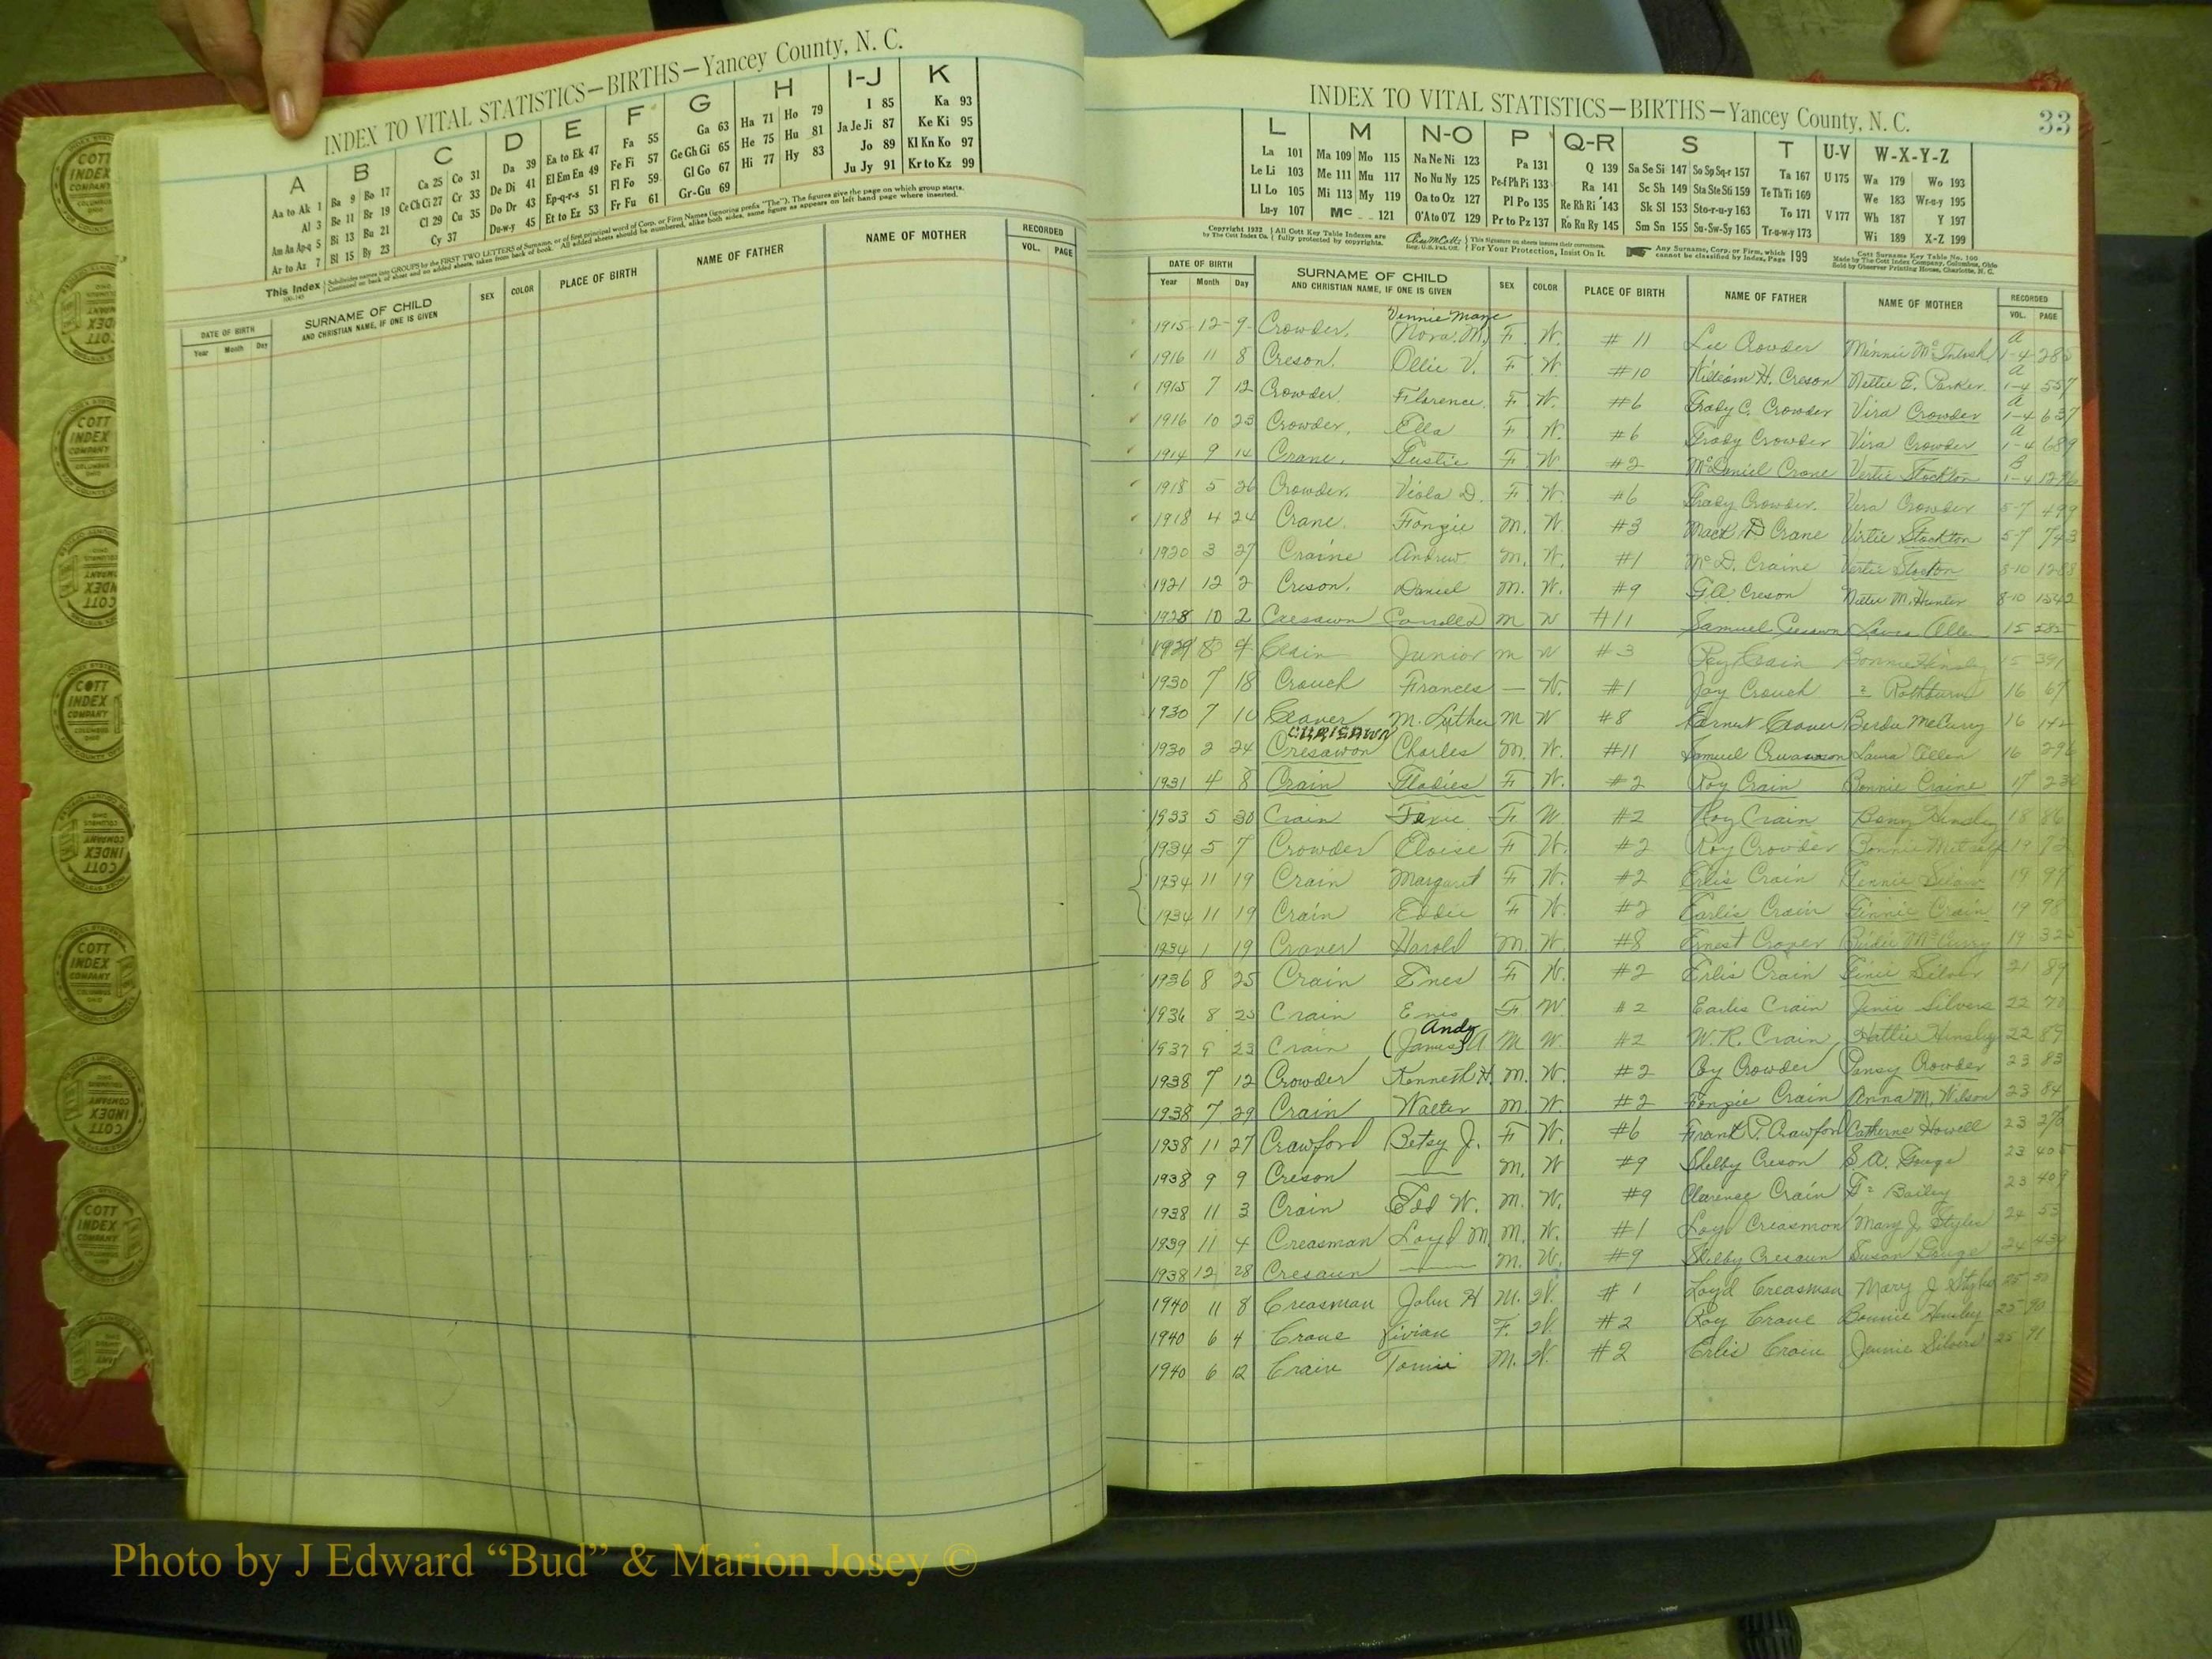 INDEX TO VITAL STATISTICS—BIRTHS—Yancey County, N. C.
A B C D E F G H I-J K
Aa to Ak 1 Ba 9 Bo 17 Ca 25 Co 31 Da 39 Ea to Ek 47 Fa 55 Ga 63 Ha 71 Ho 79 I 85 Ka 93
Al 3 Be 11 Br 19 Ce Ch Ci 27 Cr 33 De Di 41 El Em En 49 Fe Fi 57 Ge Gh Gi 65 He 75 Hu 81 Ja Je Ji 87 Ke Ki 95
Am An Ap-q 5 Bi 13 Bu 21 Cl 29 Cu 35 Do Dr 43 Ep-q-r-s 51 Fl Fo 59 Gl Go 67 Hi 77 Hy 83 Jo 89 Kl Kn Ko 97
Ar to Az 7 Bl 15 By 23 Cy 37 Du-w-y 45 Et to Ez 53 Fr Fu 61 Gr-Gu 69 Ju Jy 91 Kr to Kz 99
This Index Subdivides names into GROUPS by the FIRST TWO LETTERS of Surname, or of first principal word of Corp. or Firm Names (ignoring prefix "The"). The figures give the page on which group starts.
Continued on back of sheet and on added sheets, taken from back of book. All added sheets should be numbered, alike both sides, same figure as appears on left hand page where inserted.
DATE OF BIRTH SURNAME OF CHILD SEX COLOR PLACE OF BIRTH NAME OF FATHER NAME OF MOTHER RECORDED
Year Month Day AND CHRISTIAN NAME, IF ONE IS GIVEN VOL. PAGE
COTT INDEX COMPANY COLUMBUS OHIO
INDEX TO VITAL STATISTICS—BIRTHS—Yancey County, N. C. 33
L M N-O P Q-R S T U-V W-X-Y-Z
La 101 Ma 109 Mo 115 Na Ne Ni 123 Pa 131 Q 139 Sa Se Si 147 So Sp Sq-r 157 Ta 167 U 175 Wa 179 Wo 193
Le Li 103 Me 111 Mu 117 No Nu Ny 125 Pe-f Ph Pi 133 Ra 141 Sc Sh 149 Sta Ste Sti 159 Te Th Ti 169 We 183 Wr-u-y 195
Ll Lo 105 Mi 113 My 119 Oa to Oz 127 Pl Po 135 Re Rh Ri 143 Sk Sl 153 Sto-r-u-y 163 To 171 V 177 Wh 187 Y 197
Lu-y 107 Mc 121 O'A to O'Z 129 Pr to Pz 137 Ro Ru Ry 145 Sm Sn 155 Su-Sw-Sy 165 Tr-u-w-y 173 Wi 189 X-Z 199
Copyright 1932 by The Cott Index Co. All Cott Key Table Indexes are fully protected by copyrights. This signature on sheets insures their correctness. For Your Protection, Insist On It. Any Surname, Corp. or Firm, which cannot be classified by Index, Page 199 Cott Surname Key Table No. 100 Made by The Cott Index Company, Columbus, Ohio Sold by Observer Printing House, Charlotte, N. C.
DATE OF BIRTH SURNAME OF CHILD SEX COLOR PLACE OF BIRTH NAME OF FATHER NAME OF MOTHER RECORDED
Year Month Day AND CHRISTIAN NAME, IF ONE IS GIVEN VOL. PAGE
Vennie Marye
1915 12 9 Crowder, (Nora M.) F. W. # 11 Lee Crowder Minnie McIntosh A 1-4 285
1916 11 8 Creson, Ollie V. F W #10 William H. Creson Nettie E. Parker A 1-4 557
1915 7 12 Crowder, Florence F W. #6 Grady C. Crowder Vira Crowder A 1-4 637
1916 10 23 Crowder, Ella F W. #6 Grady Crowder Vira Crowder A 1-4 689
1914 9 14 Crane, F W #2 McDaniel Crane Vertie Stockton B 1-4
1918 5 26 Crowder, Viola D. F. W. #6 Grady Crowder. Vera Crowder 5-7 499
1918 4 24 Crane. Fonzie M. W. #3 Mack D Crane Virtie Stockton 5-7 743
1920 3 27 Craine Andrew M. W. #1 McD. Craine Vertie Stocton 8-10
1921 12 2 Creson, Daniel M. W. #9 G.A. Creson Nettie M. Hunter 8-10 1342
1928 10 2 Cresawn M W #11 Samuel Cresawn Laura Allen 15 585
1929 8 4 Crain Junior M W #3 Roy Crain Bonnie Hensley 15 391
1930 7 18 Crouch Frances — W. #1 Jay Crouch Rathburn 16 67
1930 7 10 Craver M. Luther M W #8 Ernest Craver McCurry 16 142
CURISAWN
1930 2 24 Cresawon Charles M. W. #11 Samuel Laura Allen 16 296
1931 4 8 Crain Gladies F W. #2 Roy Crain Bonnie Craine 17
1933 5 30 Crain F W. #2 Roy Crain Hensley 18 86
1934 5 7 Crowder Eloise F W. #2 Roy Crowder Bonnie Metcalf 19 72
1934 11 19 Crain Margaret F W. #2 Erlis Crain 19 97
1934 11 19 Crain Eddie F W. #2 Earlis Crain Crain 19 98
1934 1 19 Craver Harold M. W. #8 Ernest Craver McCurry 19 325
1936 8 25 Crain Enes F W. #2 Erlis Crain Silver 21 89
1936 8 25 Crain Enis F W. #2 Earlis Crain Jinie Silvers 22 70
Andy
1937 9 23 Crain (James) A M W. #2 W. R. Crain Hattie Hensley 22 89
1938 7 12 Crowder Kenneth H. M. W. #2 Coy Crowder Pansy Crowder 23 83
1938 7 29 Crain Walter M. W. #2 Fonzie Crain Anna M. Wilson 23 84
1938 11 27 Crawford Betsy J. F W. #6 Frank P. Crawford Catherne Howell 23 276
1938 9 9 Creson —— M. W #9 Shelby Creson S A. 23 405
1938 11 3 Crain Edd W. M. W. #9 Clarence Crain Bailey 23 409
1939 11 4 Creasman Loyd M. M. W. #1 Loyd Creasmon Mary J. Styles 24 53
1938 12 28 Cresaun —— M. W. #9 Shelby Cresaun Susan 24
1940 11 8 Creasman John H M. W. # 1 Loyd Creasman Mary J Styles 25
1940 6 4 Crane Vivian F. W. #2 Roy Crane Bonnie Hensley 25 90
1940 6 12 Crain M. W. #2 Erlis Crain Jennie Silvers 25 91
Photo by J Edward “Bud” & Marion Josey ©